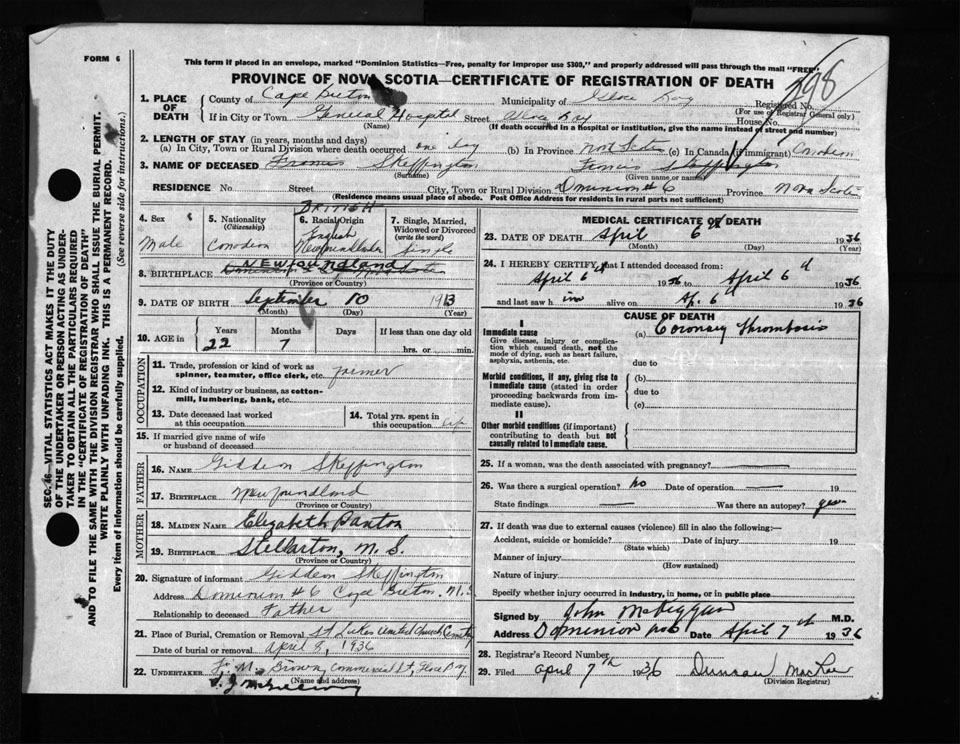 FORM 6
This form if placed in an envelope, marked "Dominion Statistics—Free, penalty for improper use $300," and properly addressed will pass through the mail "FREE"
PROVINCE OF NOVA SCOTIA—CERTIFICATE OF REGISTRATION OF DEATH
298
1. PLACE OF DEATH
County of Cape Breton Municipality of Glace Bay Registered No.
(For use of Registrar General only)
If in City or Town General Hospital Street Glace Bay House No.
(Name) (If death occurred in a hospital or institution, give the name instead of street and number)
2. LENGTH OF STAY (in years, months and days)
(a) In City, Town or Rural Division where death occurred one day (b) In Province Nova Scotia (c) In Canada (if immigrant) Canadian
3. NAME OF DECEASED Francis Skeffington Francis Skeffington
(Surname) (Given name or names)
RESIDENCE No. Street City, Town or Rural Division Dominion # 6 Province Nova Scotia
(Residence means usual place of abode. Post Office Address for residents in rural parts not sufficient)
4. Sex
Male
5. Nationality
(Citizenship)
Canadian
6. Racial Origin
BRITISH
English
Newfoundlander
7. Single, Married, Widowed or Divorced
(write the word)
Single
8. BIRTHPLACE NEWFOUNDLAND
(Province or Country)
9. DATE OF BIRTH September 10 1913
(Month) (Day) (Year)
10. AGE in
Years Months Days If less than one day old
22 7 hrs. or min.
OCCUPATION
11. Trade, profession or kind of work as spinner, teamster, office clerk, etc.
12. Kind of industry or business, as cotton-mill, lumbering, bank, etc.
13. Date deceased last worked at this occupation
14. Total yrs. spent in this occupation
15. If married give name of wife or husband of deceased
FATHER
16. NAME Giddeon Skeffington
17. BIRTHPLACE Newfoundland
(Province or Country)
MOTHER
18. MAIDEN NAME Elizabeth Panton
19. BIRTHPLACE Stellarton, N.S.
(Province or Country)
20. Signature of informant Giddeon Skeffington
Address Dominion # 6 Cape Breton N.S
Relationship to deceased Father
21. Place of Burial, Cremation or Removal St Lukes United Church Cemetry
Date of burial or removal April 8, 1936
22. UNDERTAKER F. M. Brown, Commercial St, Glace Bay
(Name and address)
MEDICAL CERTIFICATE OF DEATH
23. DATE OF DEATH April 6th 1936
(Month) (Day) (Year)
24. I HEREBY CERTIFY that I attended deceased from:
April 6th 1936 to April 6th 1936
and last saw h im alive on Ap. 6th 1936
CAUSE OF DEATH
I
Immediate cause
Give disease, injury or complication which caused death, not the mode of dying, such as heart failure, asphyxia, asthenia, etc.
(a) Coronary Thrombosis
due to
Morbid conditions, if any, giving rise to immediate cause (stated in order proceeding backwards from immediate cause).
(b)
due to
(c)
II
Other morbid conditions (if important) contributing to death but not causally related to immediate cause.
25. If a woman, was the death associated with pregnancy?
26. Was there a surgical operation? no Date of operation 19
State findings Was there an autopsy? yes
27. If death was due to external causes (violence) fill in also the following:—
Accident, suicide or homicide? Date of injury 19
(State which)
Manner of injury
(How sustained)
Nature of injury
Specify whether injury occurred in industry, in home, or in public place
Signed by John McDiggan M.D.
Address Dominion No 6 Date April 7th 1936
28. Registrar's Record Number
29. Filed April 7th 1936 Duncan MacRae
(Division Registrar)
SEC. 46—VITAL STATISTICS ACT MAKES IT THE DUTY
OF THE UNDERTAKER OR PERSON ACTING AS UNDER-
TAKER TO OBTAIN ALL THE PARTICULARS REQUIRED
IN THE "CERTIFICATE OF REGISTRATION OF DEATH"
AND TO FILE THE SAME WITH THE DIVISION REGISTRAR WHO SHALL ISSUE THE BURIAL PERMIT.
WRITE PLAINLY WITH UNFADING INK. THIS IS A PERMANENT RECORD.
Every item of information should be carefully supplied. (See reverse side for instructions.)